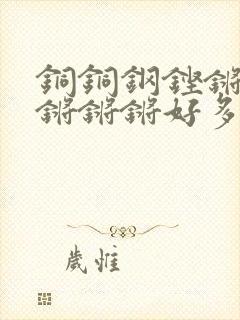 銅銅鋼鏗鏘
鏘鏘鏘好多
歲惟